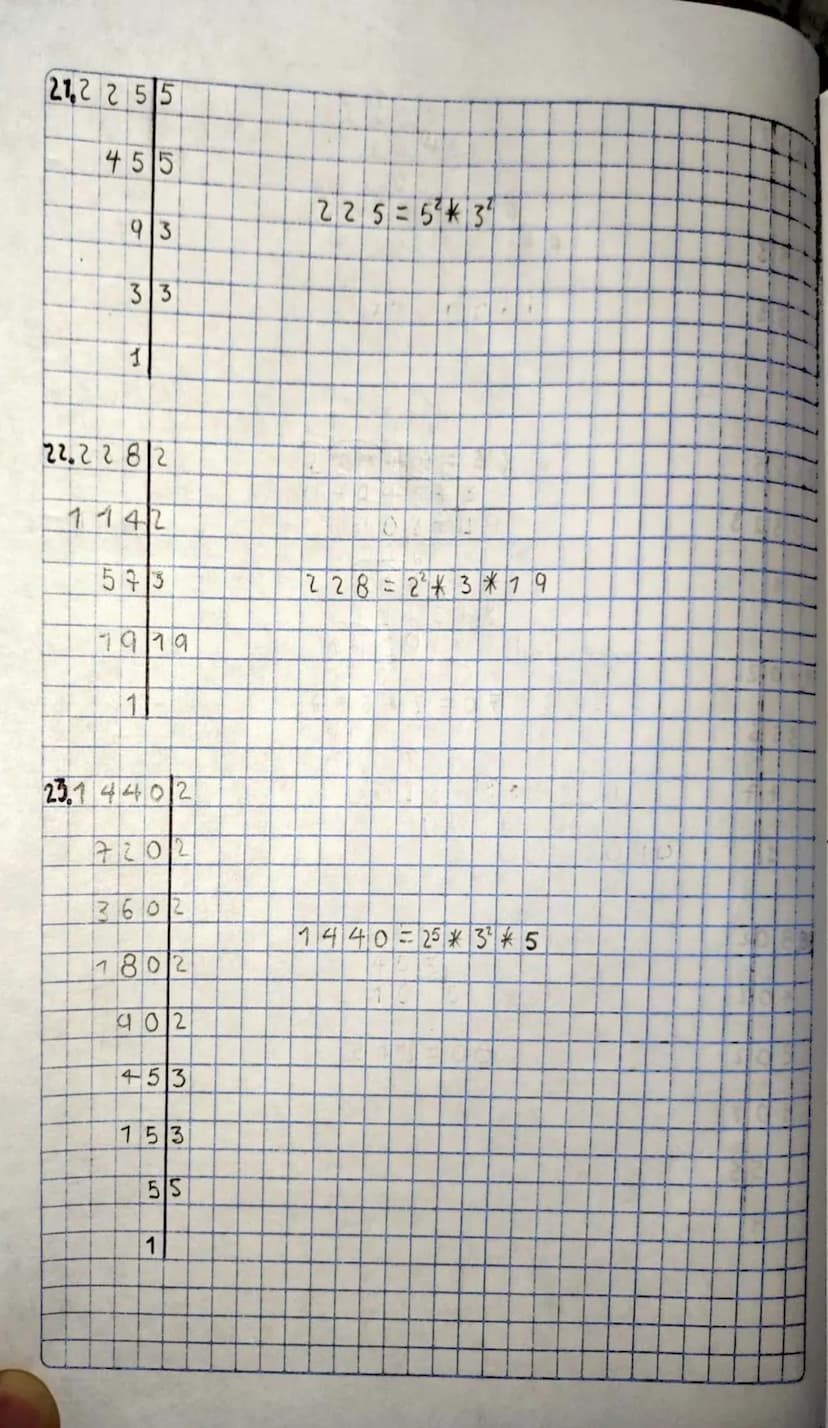 21. 225|5
45|5
225 = 5² * 3²
9|3
3|3
1|
22. 228|2
114|2
57|3
228 = 2² * 3 * 19
19|19
1|
23. 1440|2
720|2
360|2
1440 = 2⁵ * 3² * 5
180|2
90|2
45|3
15|3
5|5
1|